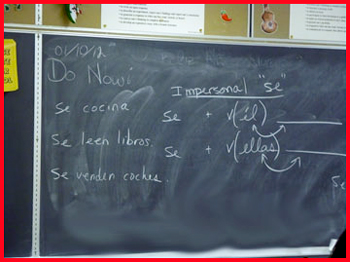 01/10/12
Do Now:
Se cocina
Se leen libros.
Se venden coches.
Impersonal "se"
Se + v(él)
Se + v(ellas)
Se